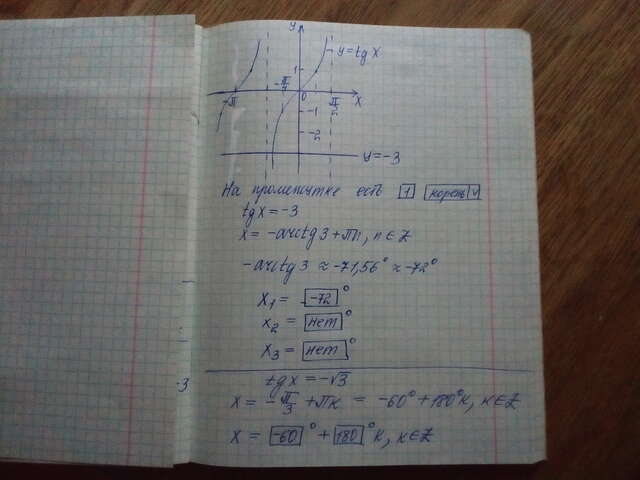 y
y = tg x
1
-π
-π/4
0
π/2
x
-1
-2
y = -3
На промежутке есть 1 корень v
tg x = -3
x = -arctg 3 + πn, n ∈ Z
-arctg 3 ≈ -71,56° ≈ -72°
x₁ = -72°
x₂ = нет°
x₃ = нет°
-3
tg x = -√3
x = -π/3 + πк = -60° + 180°к, к ∈ Z
x = -60° + 180°к, к ∈ Z